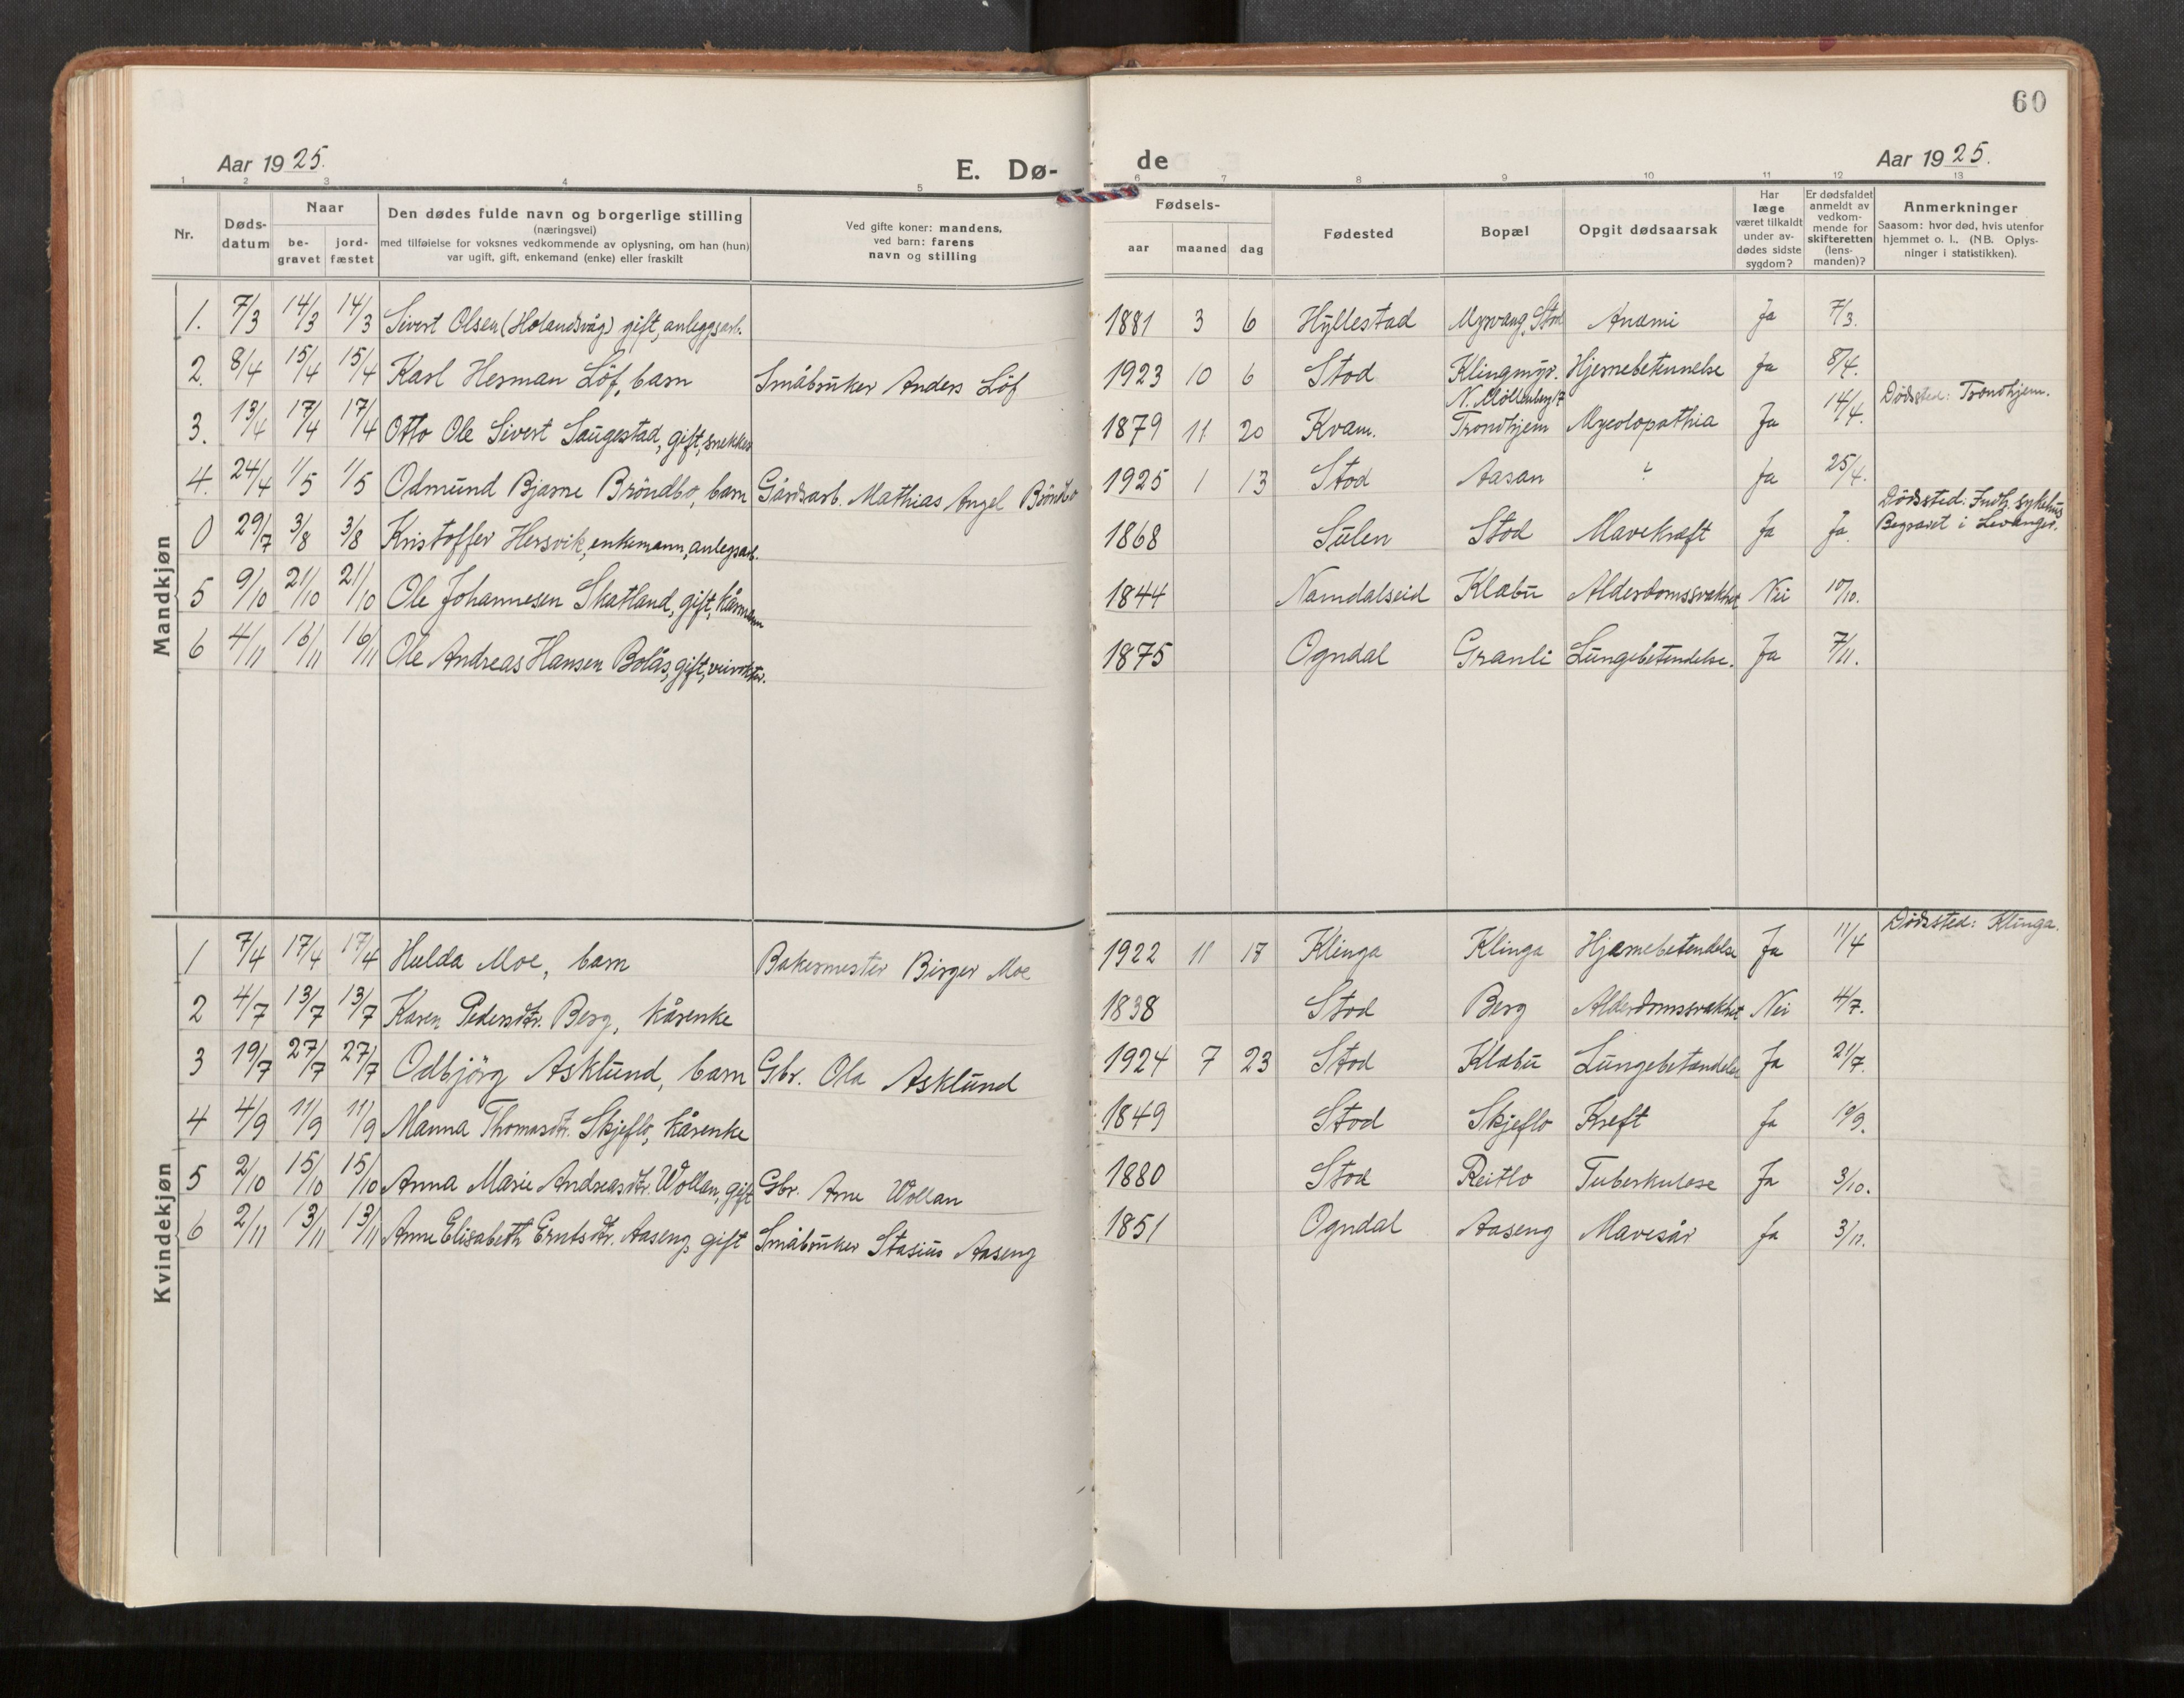 60
Aar 1925.
E. Dø-
de
Aar 1925.
1 2 3 4 5 6 7 8 9 10 11 12 13
Nr.
Døds-
datum
Naar
be-
gravet
jord-
fæstet
Den dødes fulde navn og borgerlige stilling
(næringsvei)
med tilføielse for voksnes vedkommende av oplysning, om han (hun)
var ugift, gift, enkemand (enke) eller fraskilt
Ved gifte koner: mandens,
ved barn: farens
navn og stilling
Fødsels-
aar maaned dag
Fødested
Bopæl
Opgit dødsaarsak
Har
læge
været tilkaldt
under av-
dødes sidste
sygdom?
Er dødsfaldet
anmeldt av
vedkom-
mende for
skifteretten
(lens-
manden)?
Anmerkninger
Saasom: hvor død, hvis utenfor
hjemmet o. l., (NB. Oplys-
ninger i statistikken).
Mandkjøn
1. 7/3 14/3 14/3 Sivert Olsen (Holandsvåg) gift, anleggsarb. 1881 3 6 Hyllestad Myrvang, Stod Anæmi Ja 7/3.
2. 8/4 15/4 15/4 Karl Herman Löf, barn Småbruker Anders Löf 1923 10 6 Stod Klingmyr. Hjernebetennelse Ja 8/4.
3. 13/4 17/4 17/4 Otto Ole Sivert Saugestad, gift, snekker 1879 11 20 Kvam. N. Möllenberg 17 Trondhjem Myeolopathia Ja 14/4. Dödsted: Trondhjem.
4. 24/4 1/5 1/5 Odmund Bjarne Bröndbo, barn Gårdsarb. Mathias Angel Bröndbo 1925 1 13 Stod Aasan ? Ja 25/4.
0 29/7 3/8 3/8 Kristoffer Hersvik, enkemann, anlegsarb. 1868 Sulen Stod Mavekræft Ja Ja. Dödssted: Indh. sykehus Begravet i Levanger.
5 9/10 21/10 21/10 Ole Johannesen Skatland, gift, kårmann 1844 Namdalseid Klabu Alderdomssvakhet Nei 10/10.
6 4/11 16/11 16/11 Ole Andreas Hansen Bolås, gift, veivokter. 1875 Ogndal Granli Lungebetendelse. Ja 7/11.
Kvindekjøn
1 7/4 17/4 17/4 Hulda Moe, barn Bakermester Birger Moe 1922 11 17 Klinga Klinga Hjernebetendelse Ja 11/4 Dödssted: Klinga.
2 4/7 13/7 13/7 Karen Pedersdtr. Berg, kårenke 1838 Stod Berg Alderdomssvakhet Nei 4/7.
3 19/7 27/7 27/7 Odbjörg Asklund, barn Gbr. Ola Asklund 1924 7 23 Stod Klabu Lungebetændelse Ja 21/7.
4 4/9 11/9 11/9 Manna Thomasdtr. Skjeflo, kårenke 1849 Stod Skjeflo Kreft Ja 10/9.
5 2/10 15/10 15/10 Anna Marie Andreasdtr. Wollan, gift Gbr. Arne Wollan 1880 Stod Reitlo Tuberkulose Ja 3/10.
6 2/11 13/11 13/11 Anne Elisabeth Erntsdtr. Aaseng, gift Småbruker Stasius Aaseng 1851 Ogndal Aaseng Mavesår Ja 3/11.